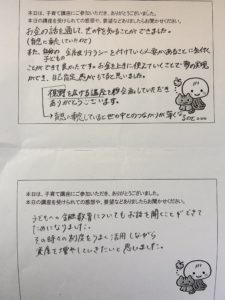 本日は、子育て講座にご参加いただき、ありがとうございました。
本日の講座を受けられての感想や、要望などありましたらお聞かせください。
お金の話を通して、世の中を知ることができました。
(自然に楽していたので)
また、自分の 金融リテラシーを付けていく必要があることに気付く
子どもの
ことができて良かったです。お金を上手に使えていくことで夢の実現
ができ、自己肯定感が上がると思いました。
視野を広げる講座を企画していただき
ありがとうございます。
→ 自然に楽していると世の中とのつながりが薄くなる
ので…
本日は、子育て講座にご参加いただき、ありがとうございました。
本日の講座を受けられての感想や、要望などありましたらお聞かせください。
子どもへの金融教育についてもお話を聞くことができて
ためになりました。
その時々の制度をうまく活用しながら
資産を増やしていきたいと思いました。